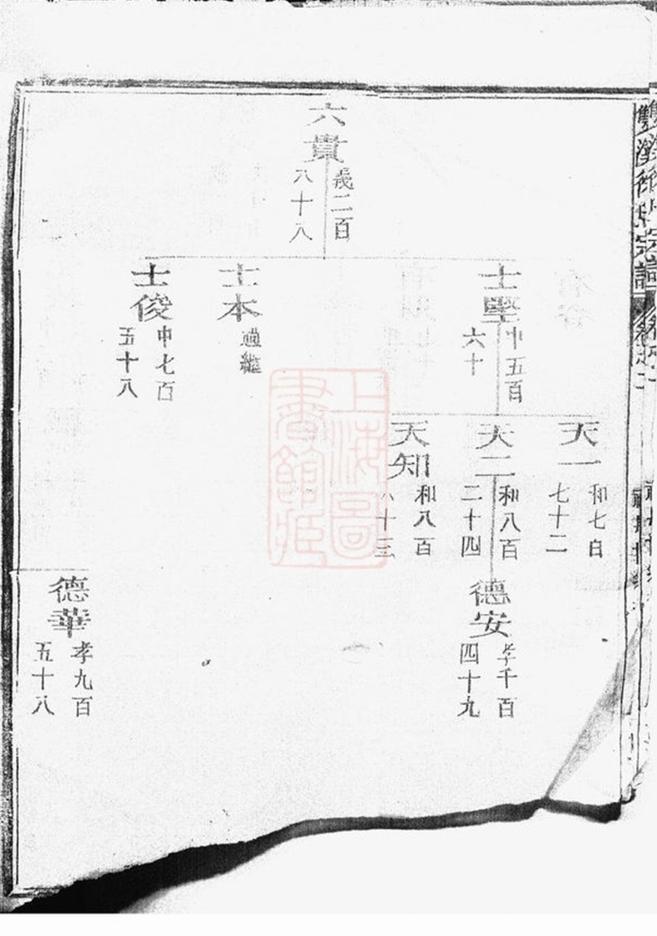 六貴
義二百
八十八
士堅
中五百
六十
士本
過繼
士俊
中七百
五十八
天一
和七百
七十二
天二
和八百
二十四
天知
和八百
八十三
德安
孝千百
四十九
德華
孝九百
五十八
上海圖
書館藏